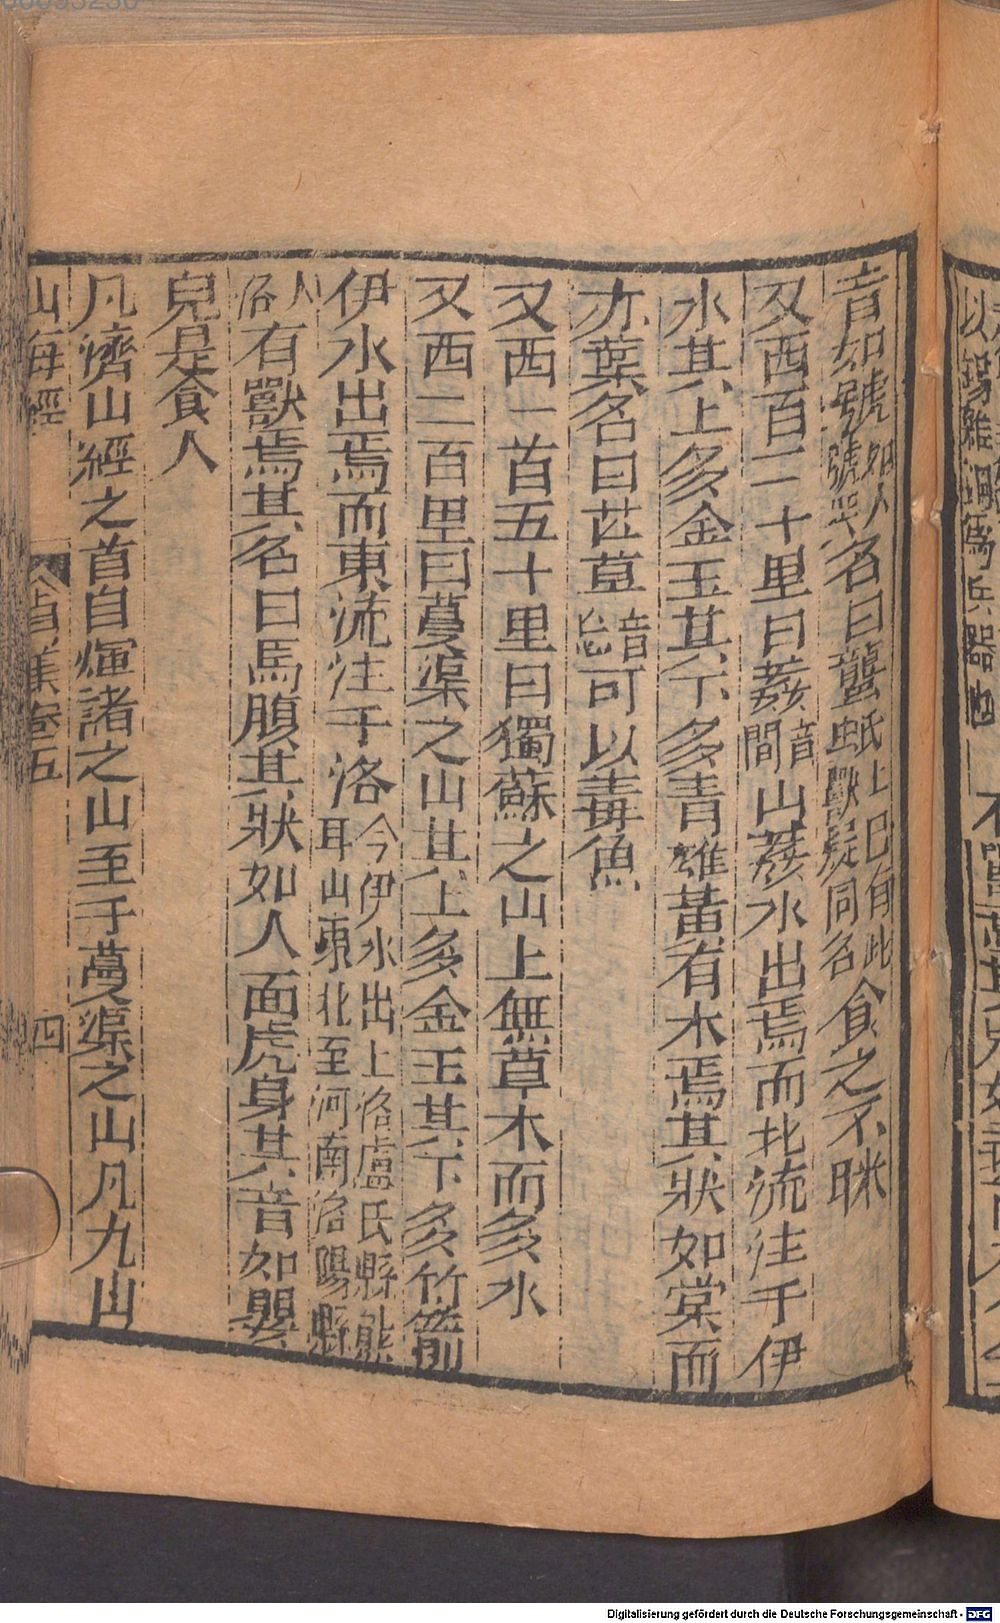 音如號號如人號哭名曰蠪蚳上已有此獸疑同名食之不眯
又西百二十里曰葌音間山葌水出焉而北流注于伊
水其上多金玉其下多青雄黃有木焉其狀如棠而
赤葉名曰芒草音忘可以毒魚
又西一百五十里曰獨蘇之山上無草木而多水
又西二百里曰蔓渠之山其上多金玉其下多竹箭
伊水出焉而東流注于洛今伊水出上洛盧氏縣熊耳山東北至河南洛陽縣
入洛有獸焉其名曰馬腹其狀如人面虎身其音如嬰
兒是食人
凡濟山經之首自煇諸之山至于蔓渠之山凡九山
山海經 卷五 四
Digitalisierung gefördert durch die Deutsche Forschungsgemeinschaft - DFG